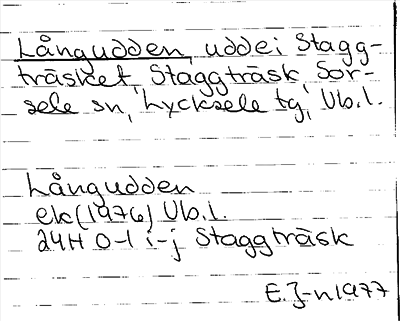 Långudden, udde i Stagg-
träsket, Staggträsk, Sor-
sele sn, Lycksele tg, Vb.l.
Långudden
ek (1976) Vb.l.
24H 0-1 i-j Staggträsk
E.J-n 1977